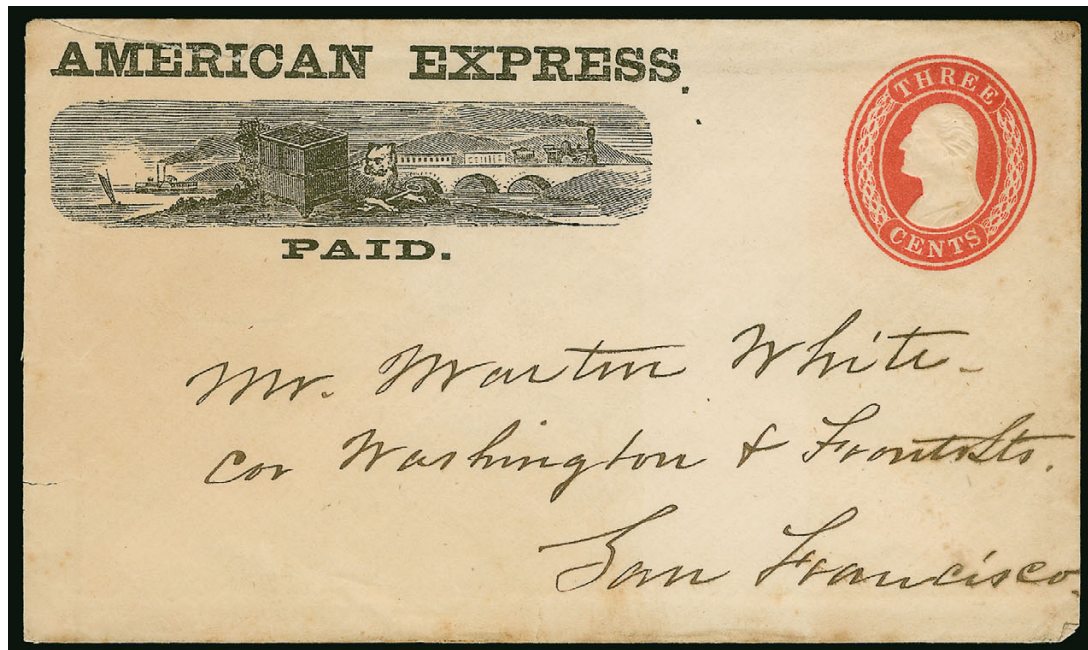 AMERICAN EXPRESS.
PAID.
THREE
CENTS
Mr. Martin White
cor Washington & Front Sts.
San Francisco